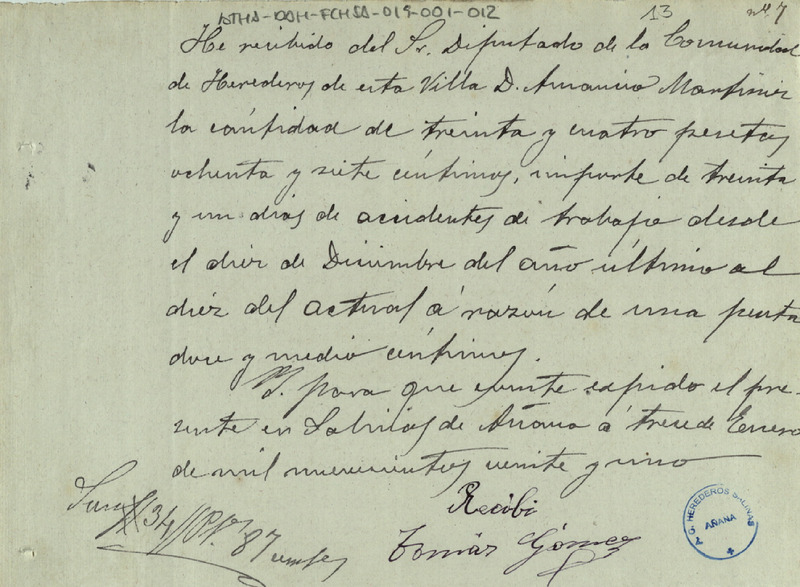 ATHA-DAH-FCHSA-019-001-012 13 nº 7
He recibido del Sr. Diputado de la Comunidad
de Herederos de esta Villa D. Amancio Martinez
la cántidad de treinta y cuatro pesetas
ochenta y siete céntimos, importe de treinta
y un dias de accidentes de trabajo desde
el diez de Diciembre del año último al
diez del actual á razón de una peseta
doce y medio céntimos.
Y para que conste expido el pre-
sente en Salinas de Añana á trece de Enero
de mil novecientos veinte y uno
Recibi
Son 34 Pts. 87 centos
Tomás Gómez
C. HEREDEROS SALINAS
AÑANA